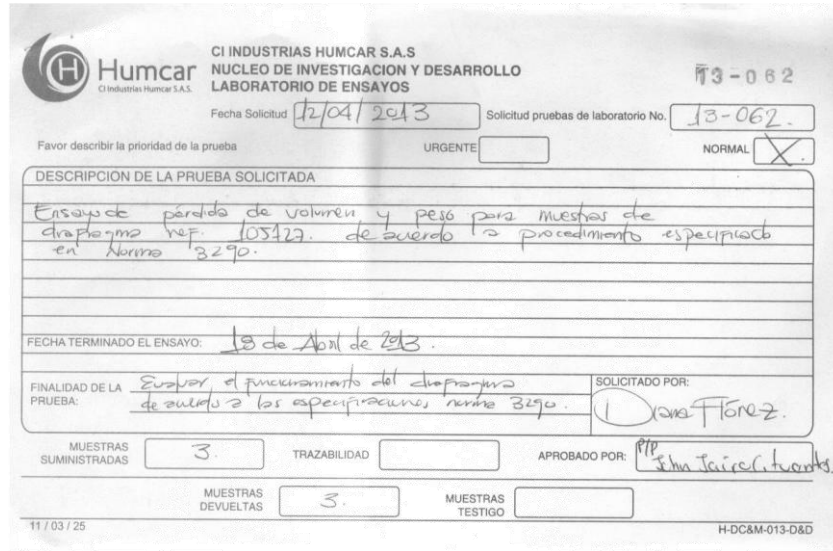 Humcar
CI Industrias Humcar S.A.S.
CI INDUSTRIAS HUMCAR S.A.S
NUCLEO DE INVESTIGACION Y DESARROLLO
LABORATORIO DE ENSAYOS
13-062
Fecha Solicitud 12/04/2013 Solicitud pruebas de laboratorio No. 13-062.
Favor describir la prioridad de la prueba URGENTE NORMAL X
DESCRIPCION DE LA PRUEBA SOLICITADA
Ensayo de pérdida de volumen y peso para muestras de
diafragma ref. 105427. de acuerdo a procedimiento especificado
en Norma 3290.
FECHA TERMINADO EL ENSAYO: 18 de Abril de 2013.
FINALIDAD DE LA PRUEBA: Evaluar el funcionamiento del diafragma
de acuerdo a las especificaciones norma 3290.
SOLICITADO POR: Diana Flórez.
MUESTRAS SUMINISTRADAS 3. TRAZABILIDAD APROBADO POR: P/P John Jairo Cifuentes.
MUESTRAS DEVUELTAS 3. MUESTRAS TESTIGO
11 / 03 / 25 H-DC&M-013-D&D